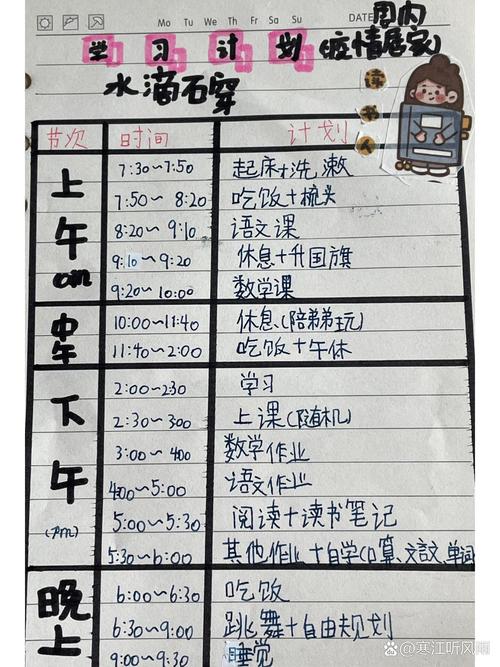 Mo Tu We Th Fr Sa Su DATE
周内
学习计划(疫情居家)
水滴石穿
读书人
节次 时间 计划
上午am
7:30~7:50 起床+洗漱
7:50~8:20 吃饭+梳头
8:20~9:10 语文课
9:10~9:20 休息+升国旗
9:20~10:00 数学课
中午
10:00~11:40 休息(陪弟弟玩)
11:40~2:00 吃饭+午休
下午(pm)
2:00~2:30 学习
2:30~300 上课(随机)
3:00~400 数学作业
400~5:00 语文作业
5:00~5:30 阅读+读书笔记
5:30~6:00 其他作业+自学(口算、文言文、单词
晚上
6:00~6:30 吃饭
6:30~9:00 跳舞+自由规划
9:00~9:30 睡觉
@寒江听风雨